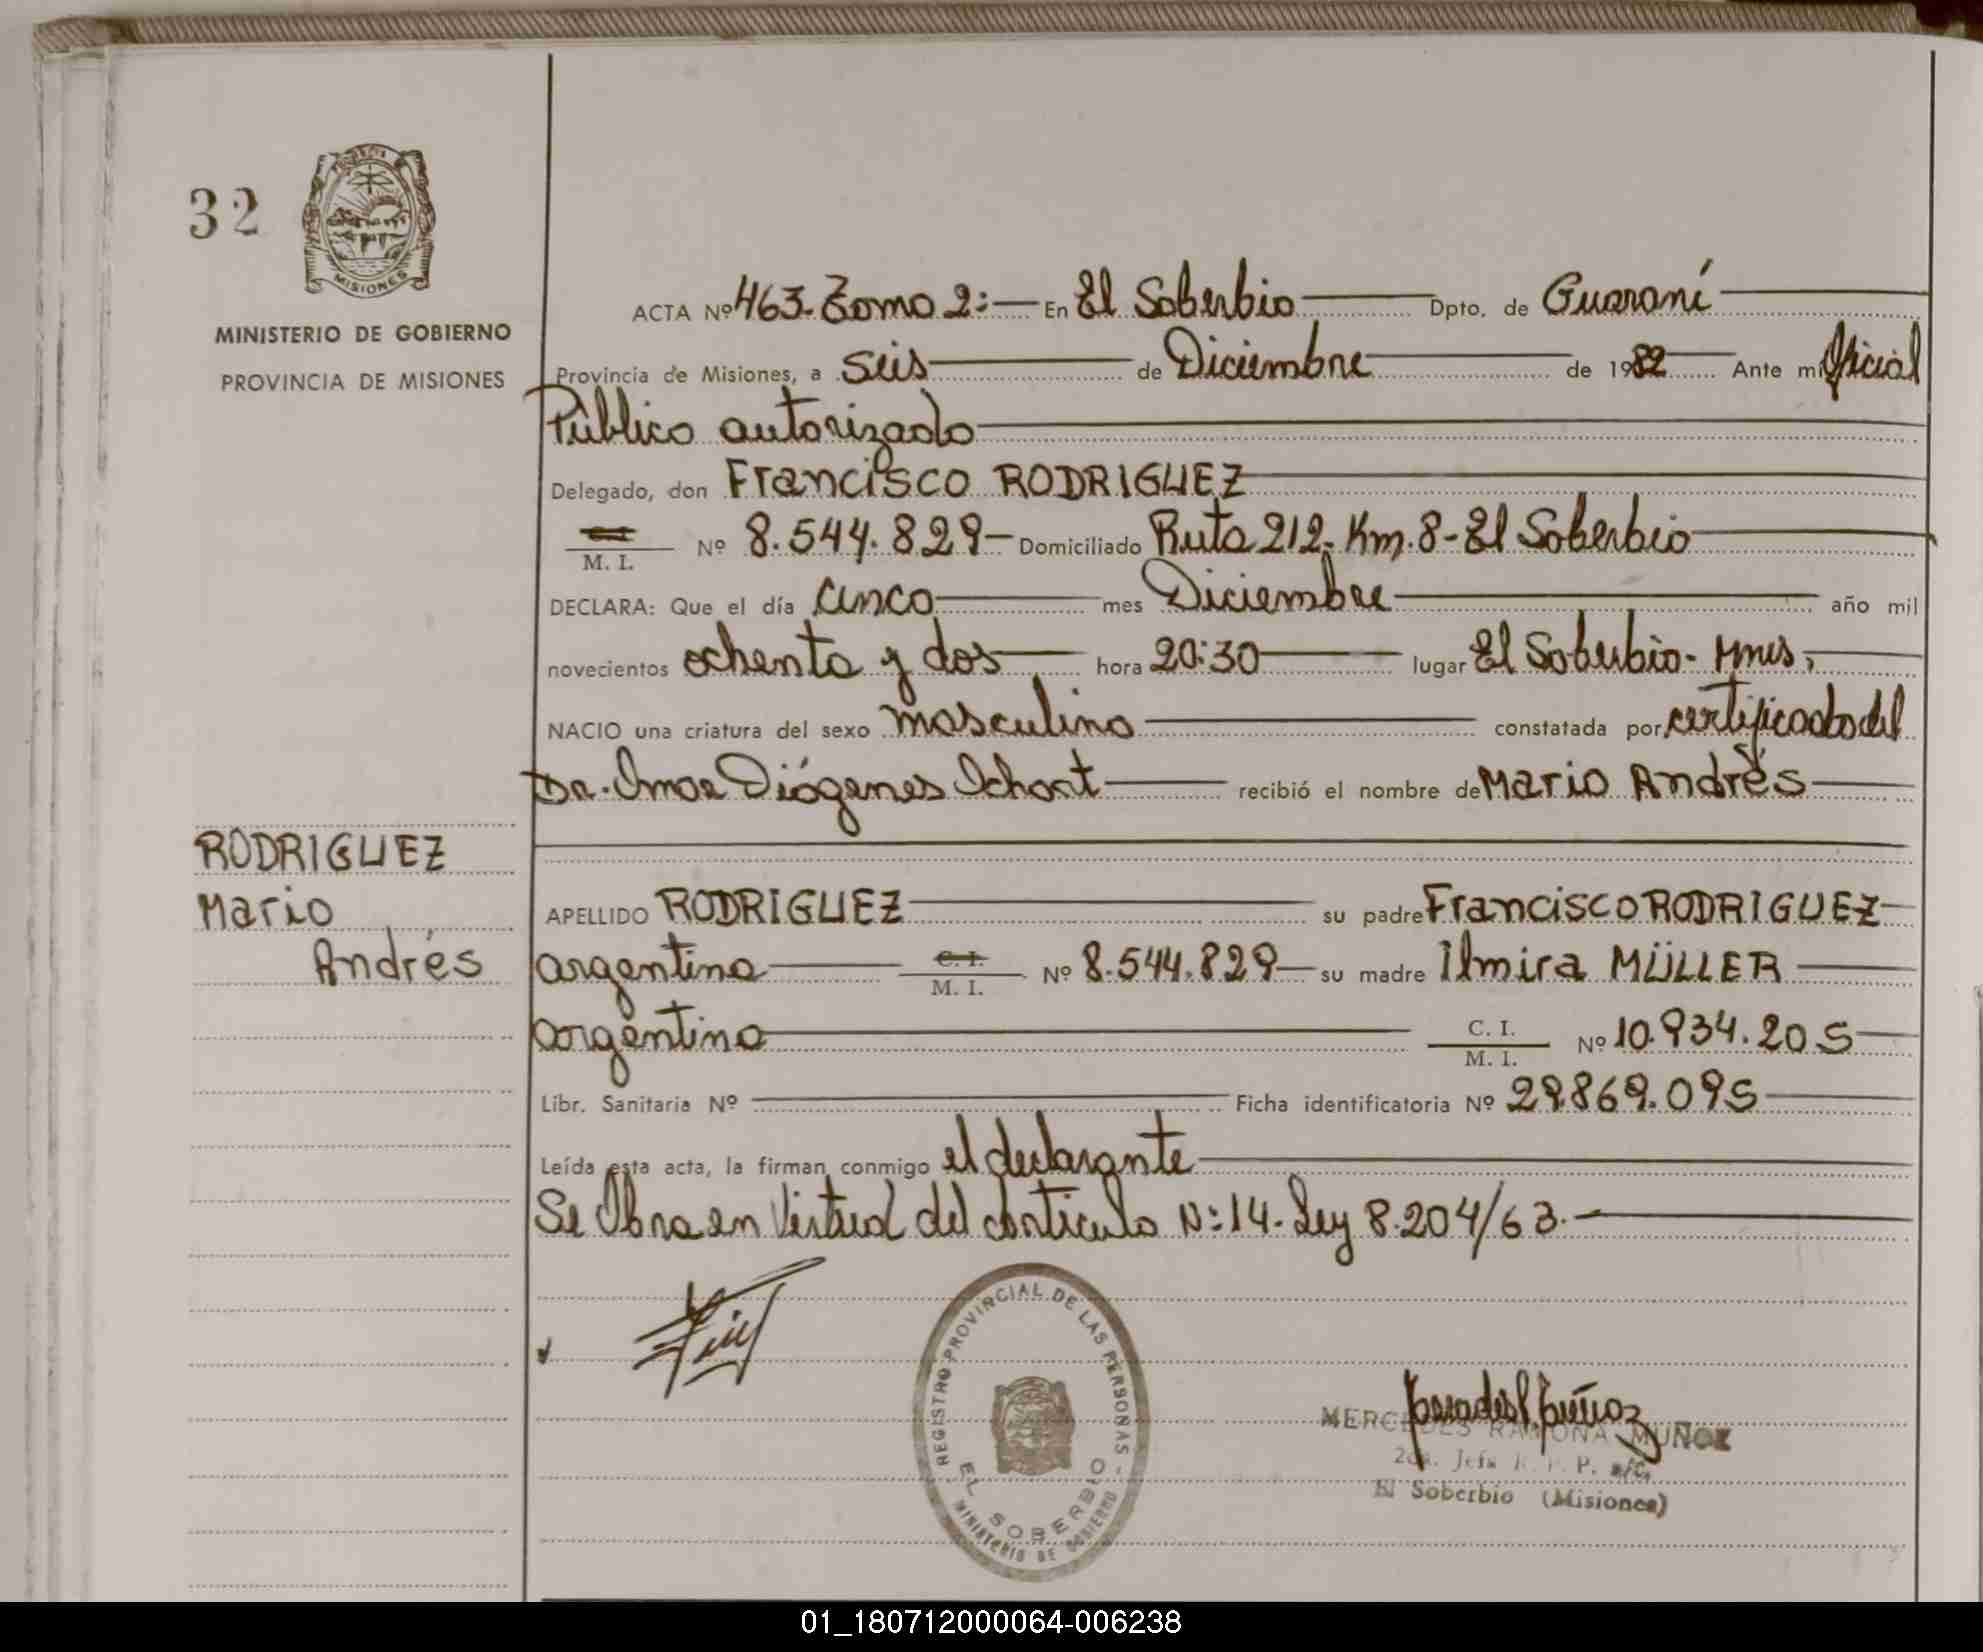 32
MISIONES
MINISTERIO DE GOBIERNO
PROVINCIA DE MISIONES
ACTA Nº 463. Tomo 2:— En El Soberbio — Dpto. de Guaraní —
Provincia de Misiones, a seis — de Diciembre — de 1982 — Ante mi Oficial
Público autorizado —
Delegado, don Francisco RODRIGUEZ —
C. I. / M. I. Nº 8.544.829 — Domiciliado Ruta 212. Km. 8 - El Soberbio —
DECLARA: Que el día cinco — mes Diciembre — año mil
novecientos ochenta y dos — hora 20:30 — lugar El Soberbio - Mnes, —
NACIO una criatura del sexo masculino — constatada por certificado del
Dr. Omar Diógenes Schort — recibió el nombre de Mario Andrés —
RODRIGUEZ
Mario
Andrés
APELLIDO RODRIGUEZ — su padre Francisco RODRIGUEZ —
argentina — C. I. / M. I. Nº 8.544.829 — su madre Ilmira MÜLLER —
argentina — C. I. / M. I. Nº 10.934.205 —
Libr. Sanitaria Nº — Ficha identificatoria Nº 29.869.095 —
Leída esta acta, la firman conmigo el declarante —
Se Obra en Virtud del articulo Nº 14. Ley 8.204/63. —
REGISTRO PROVINCIAL DE LAS PERSONAS -
EL SOBERBIO
MINISTERIO DE GOBIERNO
MERCEDES RAMONA MUÑOZ
2da. Jefa R. P. P.
El Soberbio (Misiones)
01_180712000064-006238